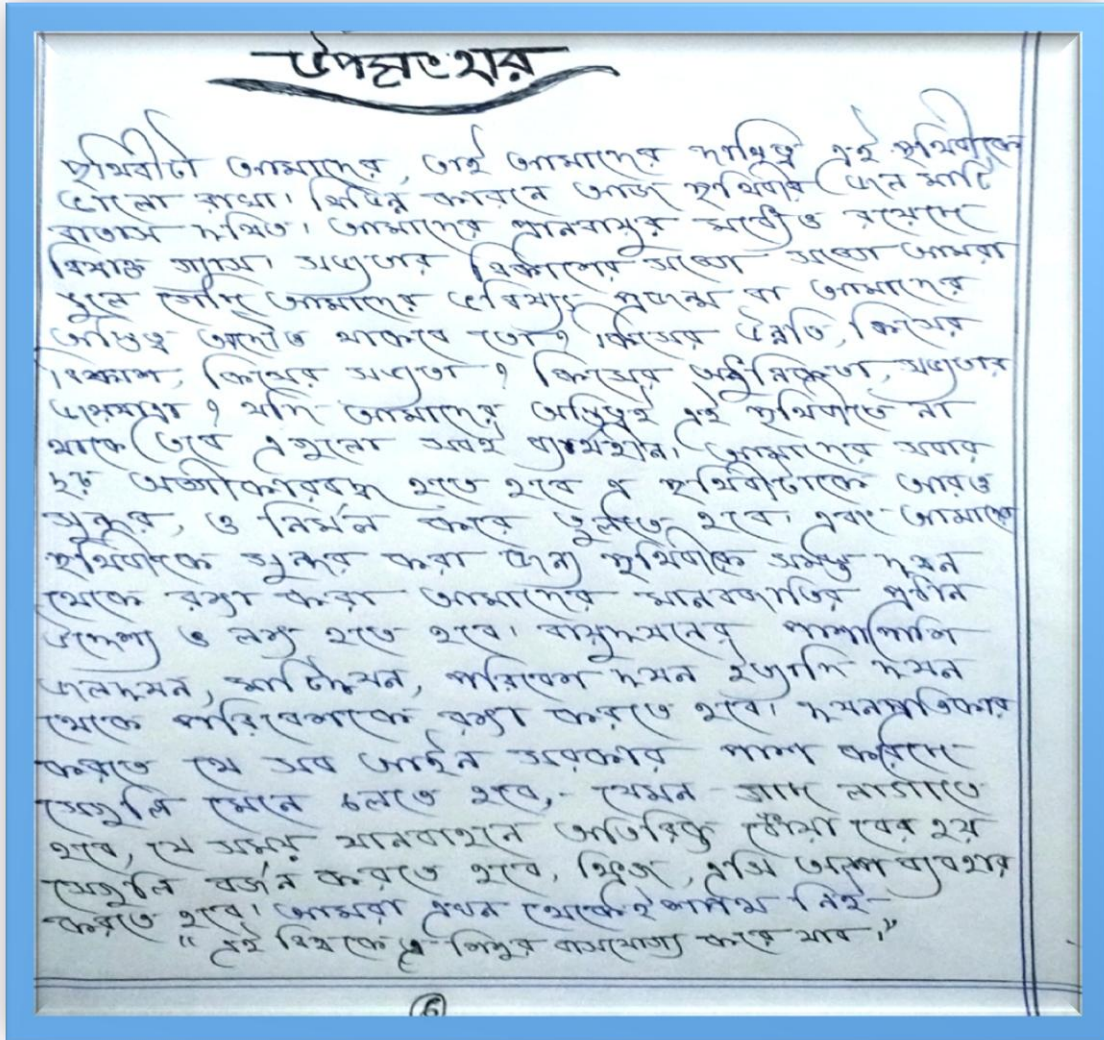 উপসংহার
পৃথিবীটা আমাদের, তাই আমাদের দায়িত্ব এই পৃথিবীকে
ভালো রাখা। বিভিন্ন কারনে আজ পৃথিবীর জল মাটি
বাতাস দূষিত। আমাদের প্রানবায়ুর মধ্যেও রয়েছে
বিষাক্ত গ্যাস। সভ্যতার বিকাশের সঙ্গে সঙ্গে আমরা
ভুলে গেছি আমাদের ভবিষ্যৎ প্রজন্ম বা আমাদের
অস্তিত্ব আদৌও থাকবে তো? কিসের উন্নতি, কিসের
বিকাশ, কিসের সভ্যতা? কিসের আধুনিকতা, সভ্যতার
জয়যাত্রা? যদি আমাদের অস্তিত্বই এই পৃথিবীতে না
থাকে তবে এগুলো সবই ব্যার্থহীন। আমাদের সবার
দৃঢ় অঙ্গীকারবদ্ধ হতে হবে এ পৃথিবীটাকে আরও
সুন্দর, ও নির্মল করে তুলতে হবে। এবং আমাদের
পৃথিবীকে সুন্দর করা জন্য পৃথিবীকে সমস্ত দূষন
থেকে রক্ষা করা আমাদের মানবজাতির প্রধান
উদ্দেশ্য ও লক্ষ্য হতে হবে। বায়ুদূষনের পাশাপাশি
জলদূষন, মাটিদূষন, পরিবেশ দূষন ইত্যাদি দূষন
থেকে পরিবেশকে রক্ষা করতে হবে। দূষনপ্রতিকার
করতে যে সব আইন সরকার পাশ করিছে
সেগুলি মেনে চলতে হবে,- যেমন - গাছ লাগাতে
হবে, যে সময় যানবাহনে অতিরিক্ত ধোঁয়া বের হয়
সেগুলি বর্জন করতে হবে, ফ্রিজ, এসি অল্প ব্যবহার
করতে হবে। আমরা এখন থেকেই শপথ নিই-
"এই বিশ্বকে এ শিশুর বাসযোগ্য করে যাব।"
৬